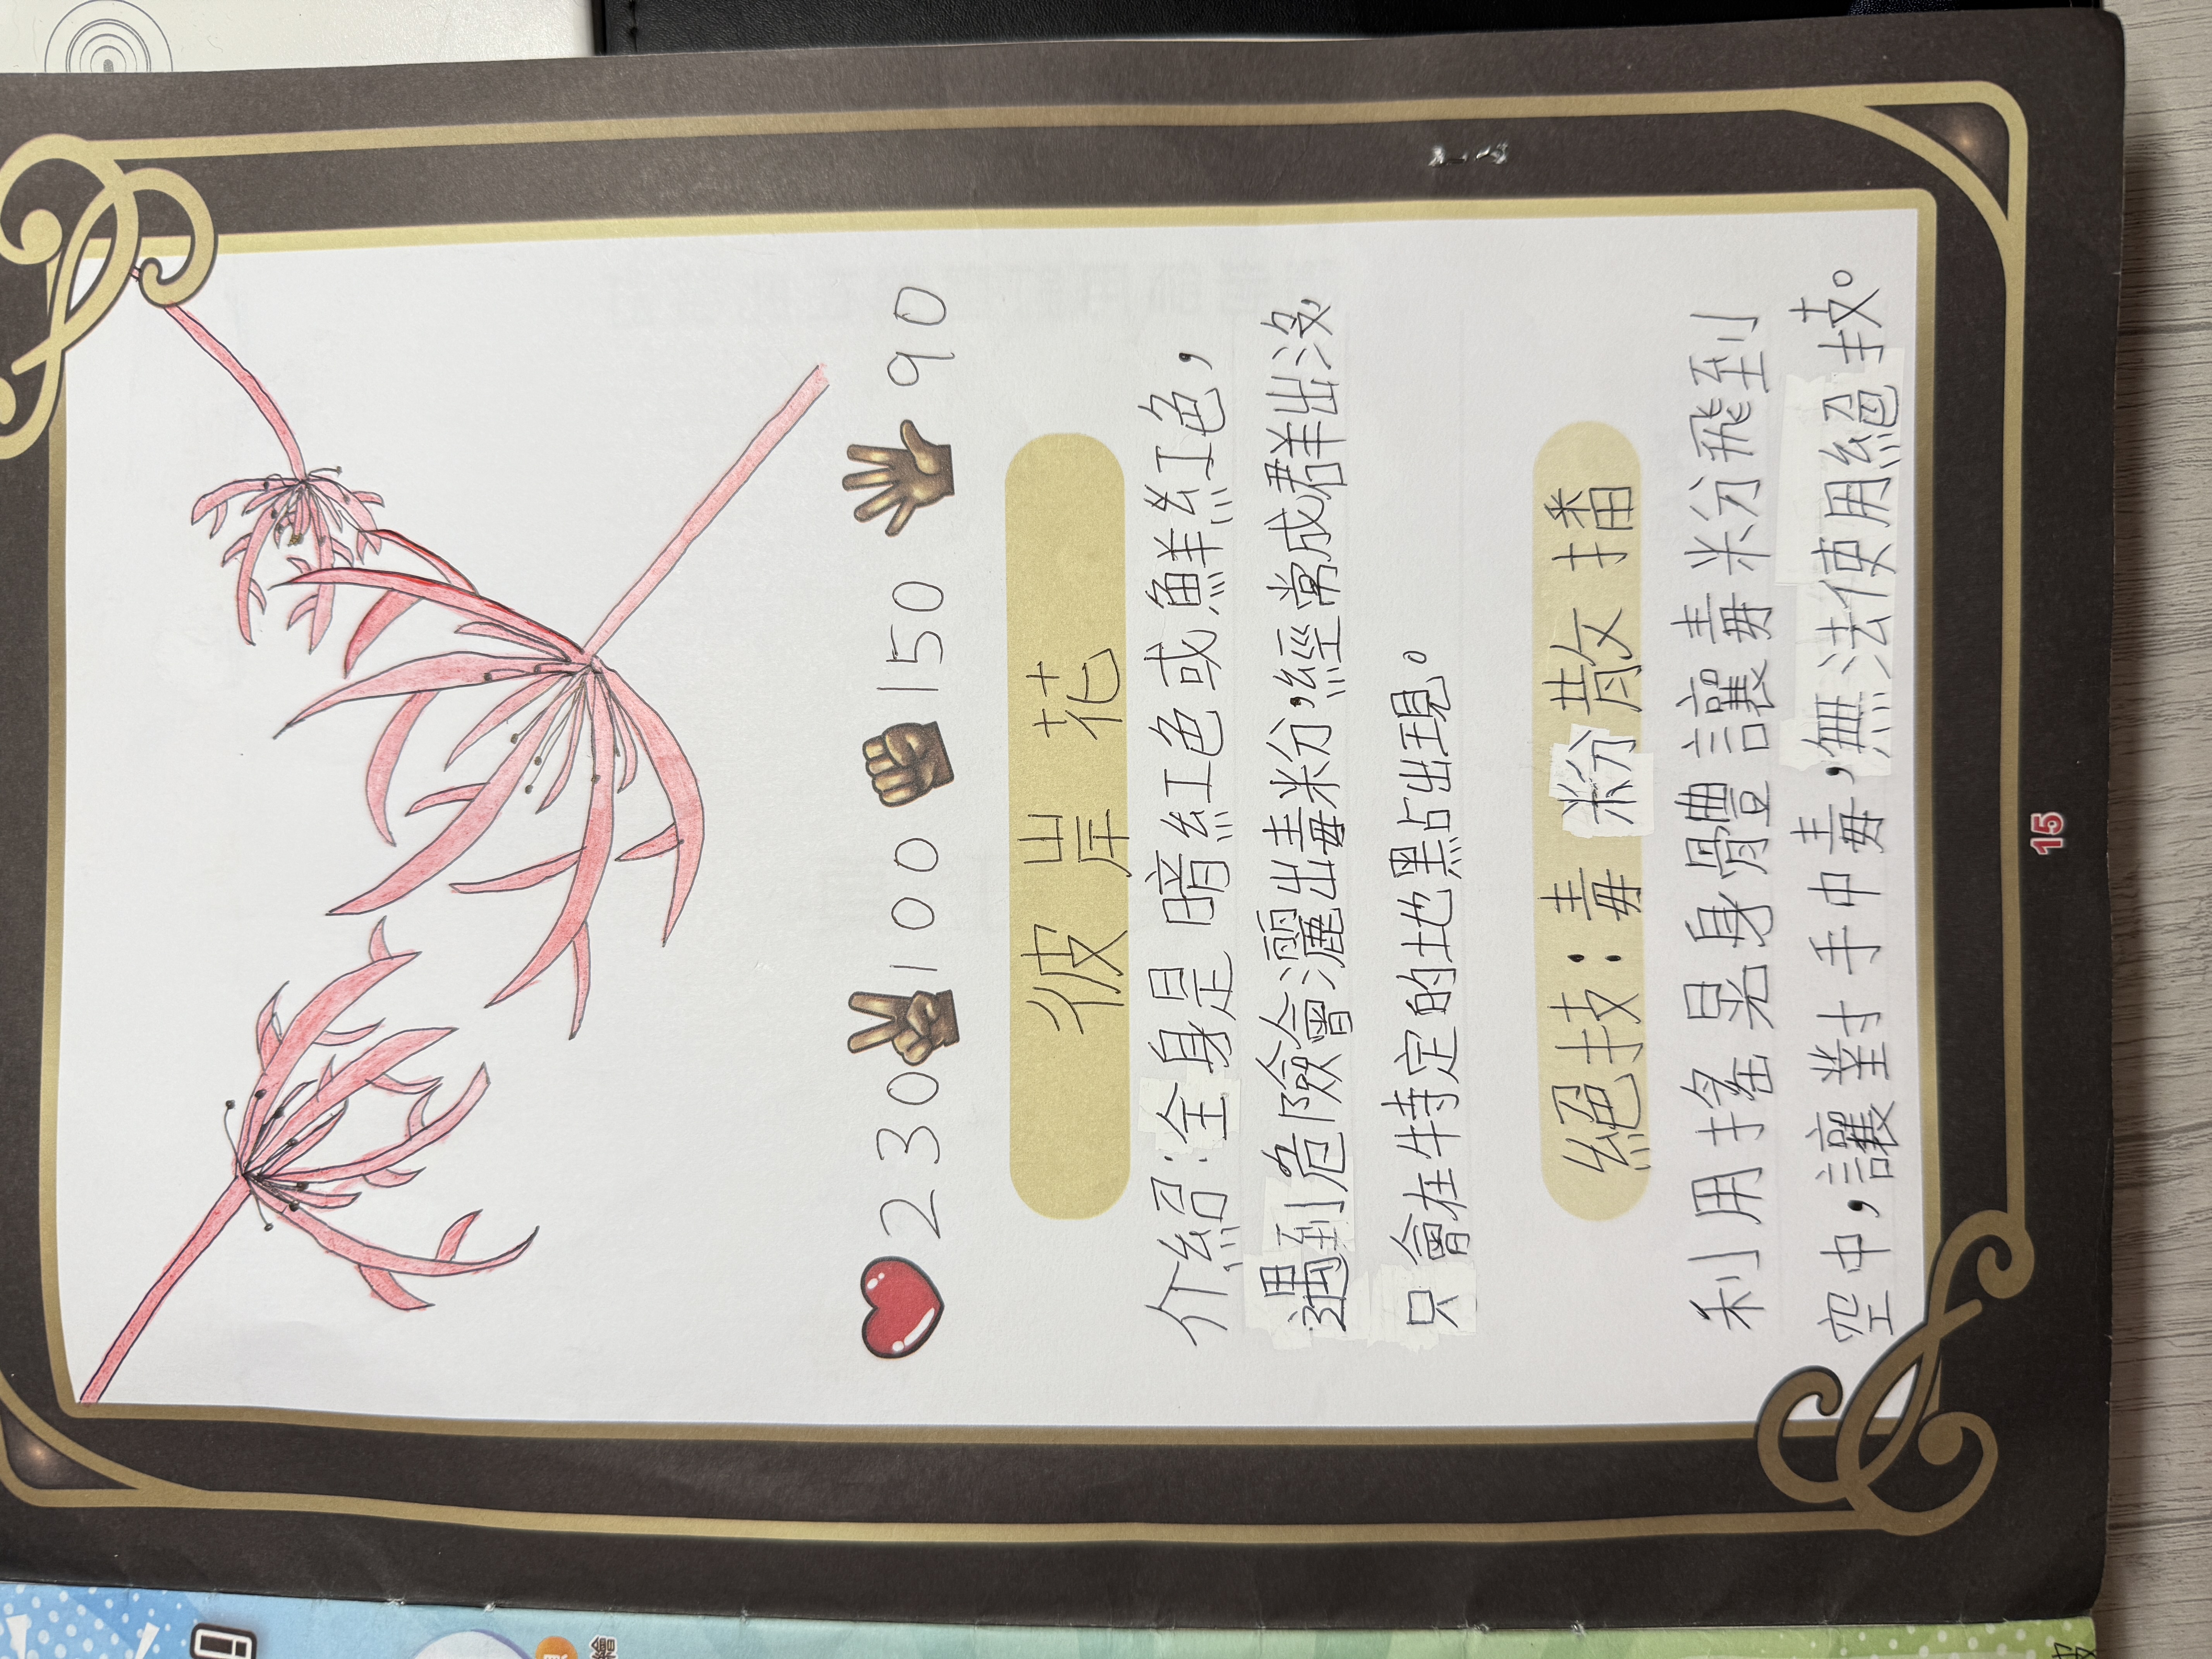 230 100 150 90
彼岸花
介紹:全身是暗紅色或鮮紅色,
遇到危險會灑出毒粉,經常成群出沒,
只會在特定的地點出現。
絕技:毒粉散播
利用搖晃身體讓毒粉飛到
空中,讓對手中毒,無法使用絕技。
15